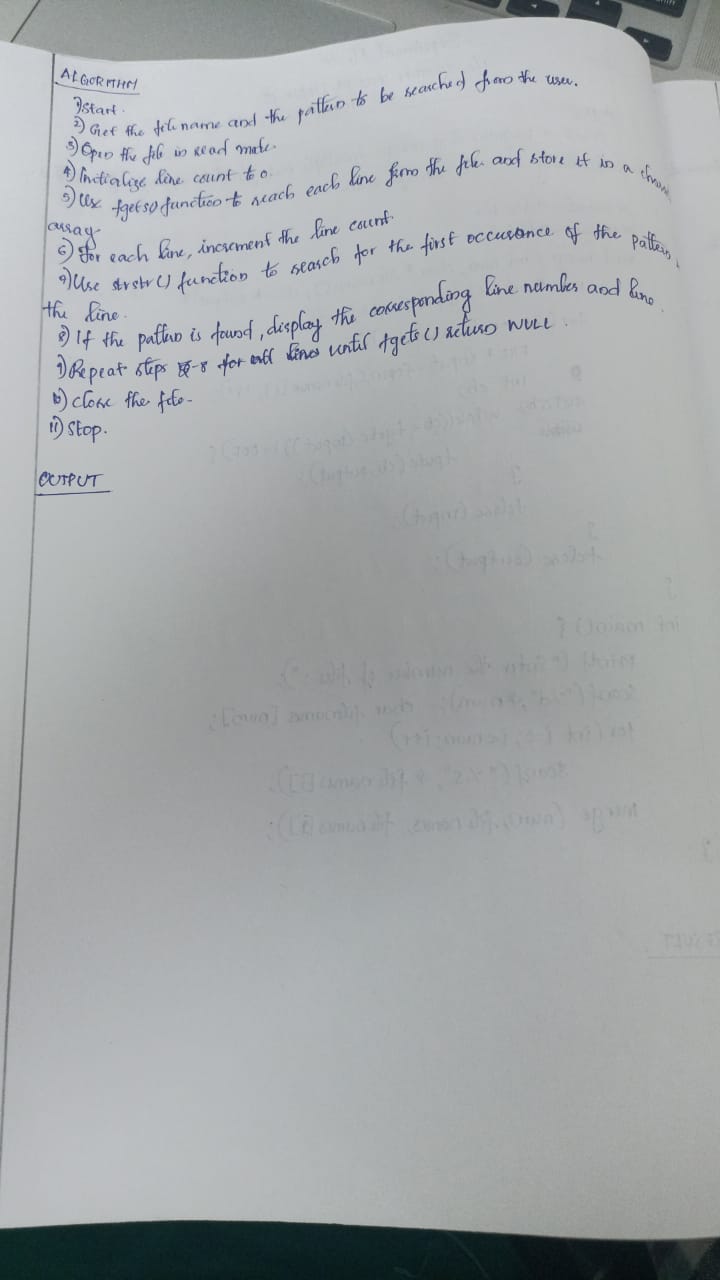 ALGORITHM
1) Start.
2) Get the file name and the pattern to be searched from the user.
3) Open the file in read mode.
4) Initialize line count to 0.
5) Use fgets() function to reach each line from the file and store it in a char
array
6) For each line, increment the line count.
7) Use strstr() function to search for the first occurance of the pattern,
the line.
8) If the pattern is found, display the corresponding line number and line.
9) Repeat steps 5-8 for all lines until fgets() return NULL.
10) close the file.
11) Stop.
OUTPUT